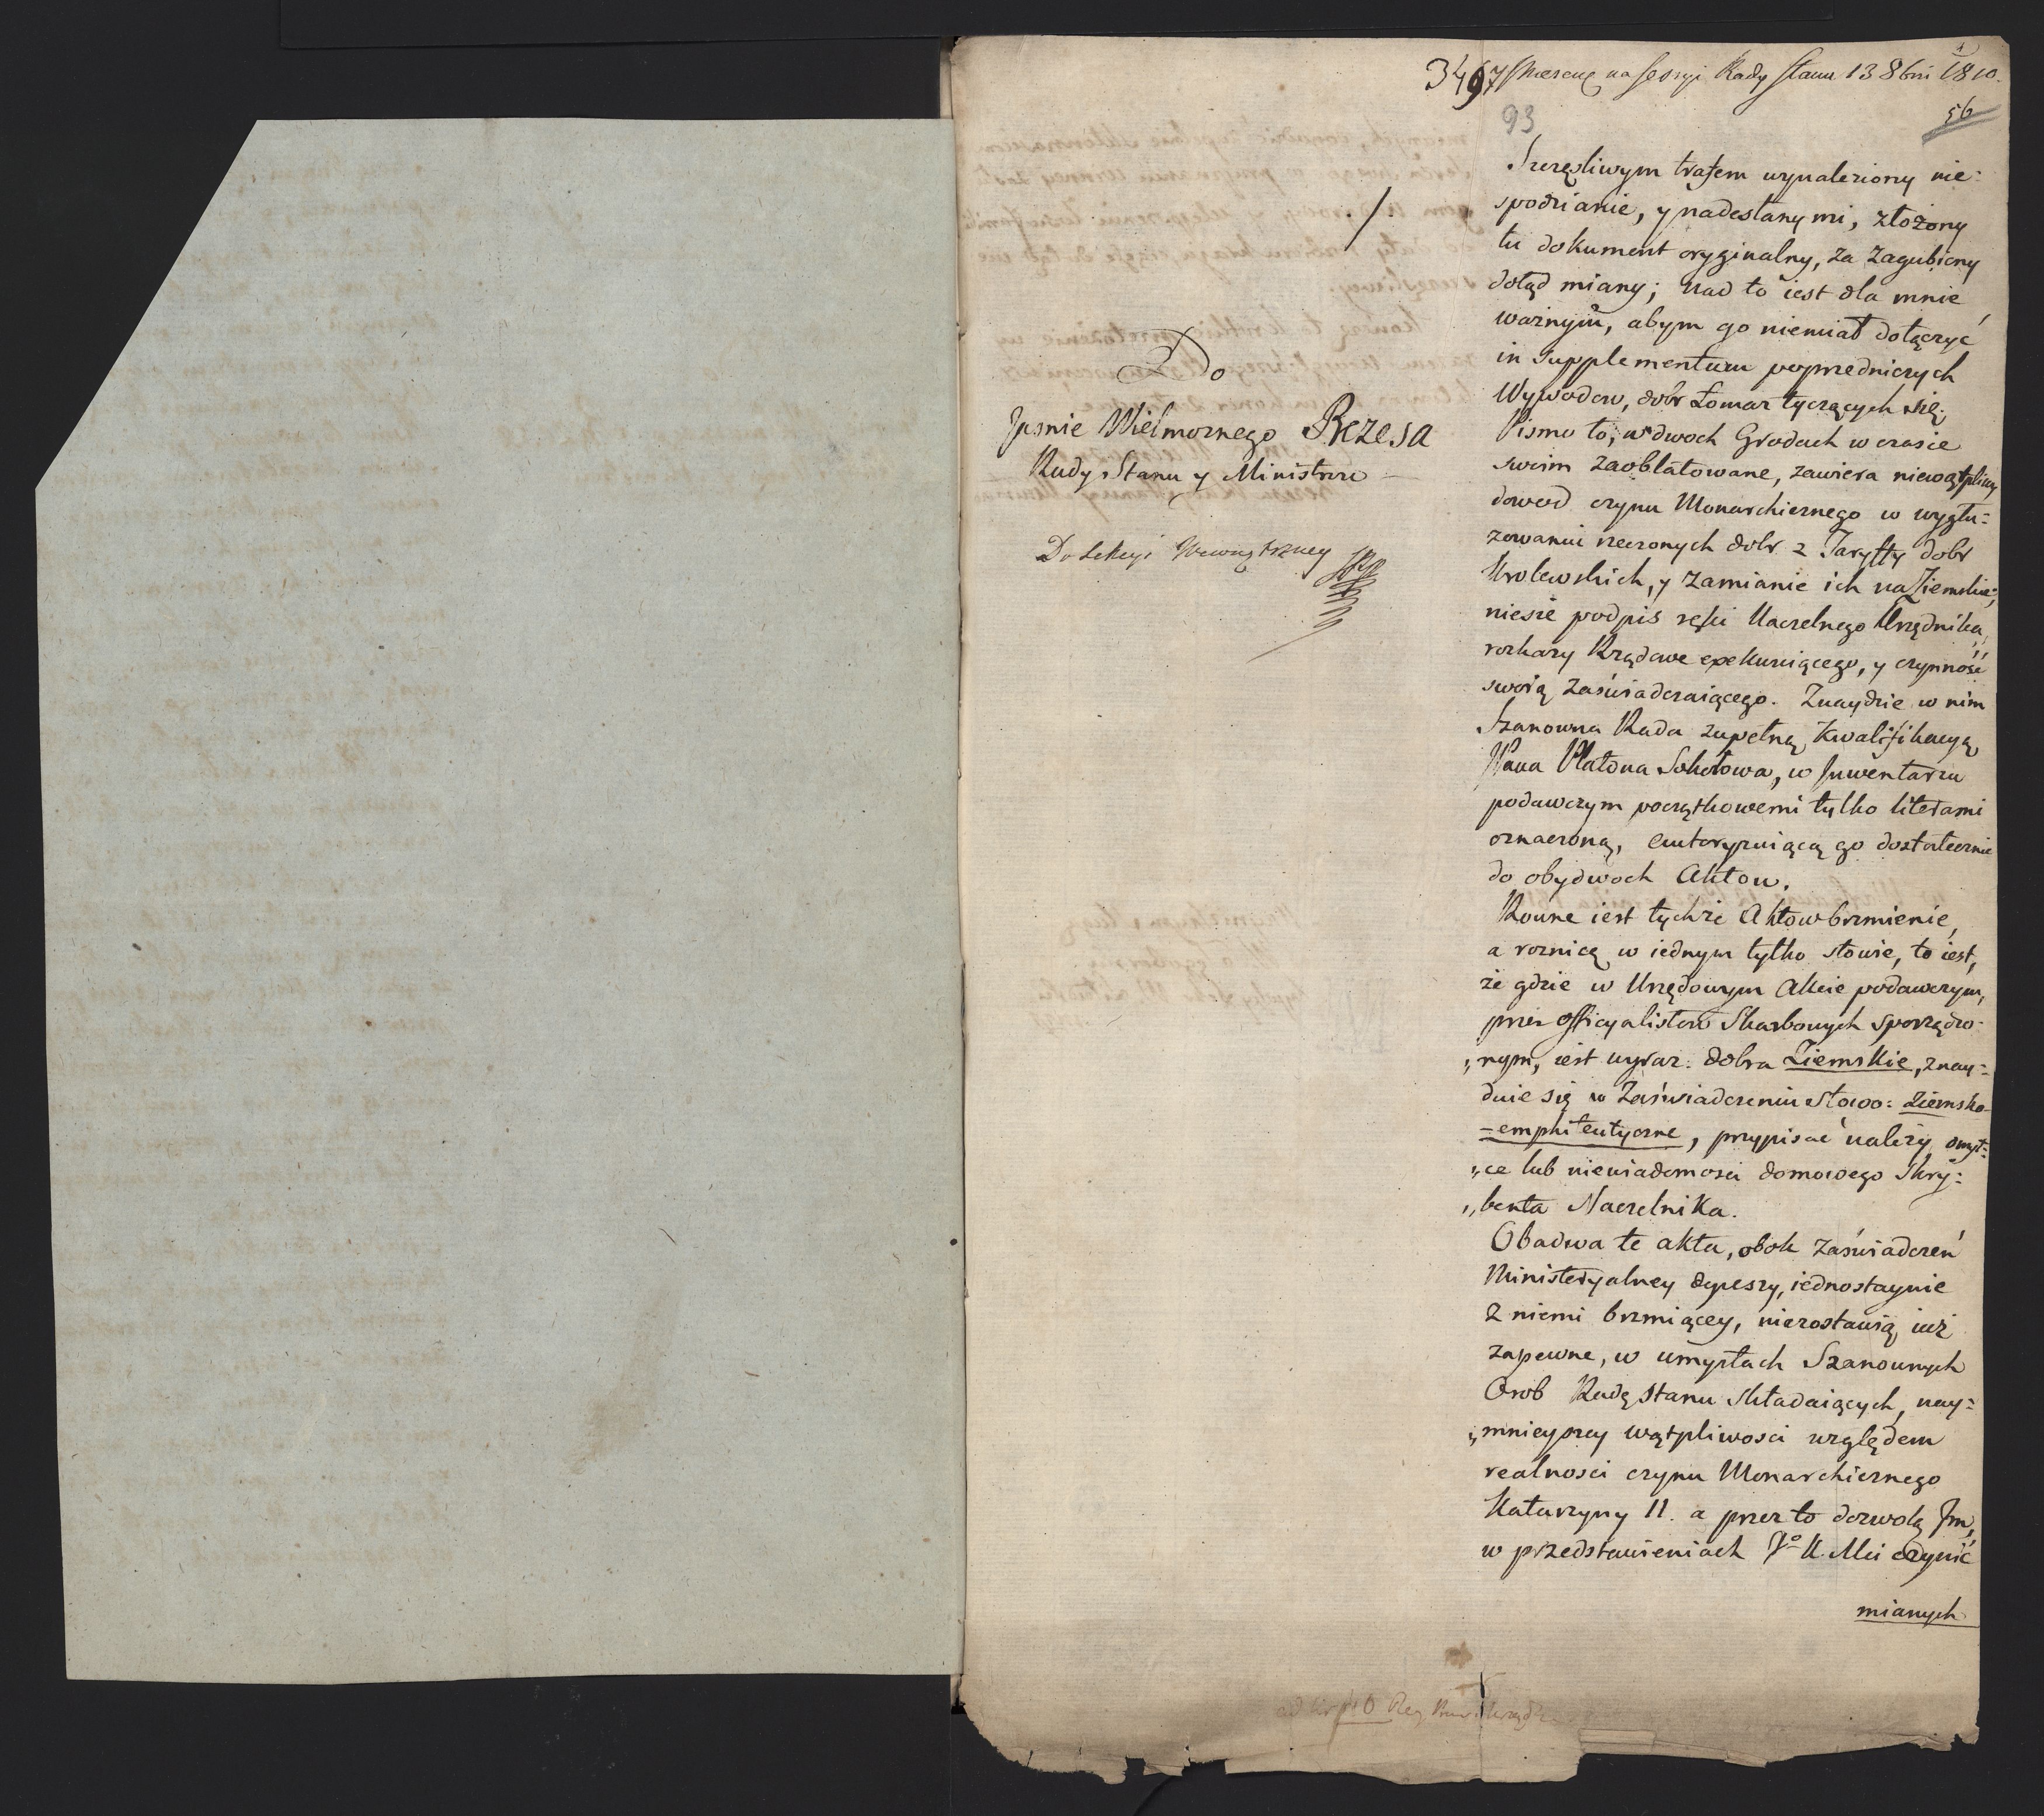 3497 Wniesene na Sessyi Rady Stanu 13 8bri 1810.
93
56
Do
Jasnie Wielmoznego Prezesa
Rady Stanu y Ministrow
Do Sekcyi Wewnętrzney
Szczęśliwym trafem wynaleziony nie=
spodzianie, y nadesłany mi, złożony
tu dokument oryginalny, za zagubiony
dotąd miany; nad to iest dla mnie
ważnym, abym go niemiał dołączyć
in Supplementum poprzedniczych
Wywodow, dobr Łomaz tyczących się.
Pismo to, w dwoch Grodach w czasie
swoim zaoblatowane, zawiera niewątpliwy
dowod czynu Monarchicznego w wygłu=
zowaniu rzeczonych dobr z Taryffy dobr
Krolewskich, y zamianie ich na Ziemskie;
niesie podpis ręki Naczelnego Urzędnika,
rozkazy Rządowe exekuuiącego, y czynność
swoią zaświadczaiącego. Znaydzie w nim
Szanowna Rada zupełną kwalifikacyą
Pana Platona Sokołowa, w Inwentarzu
podawczym początkowemi tylko literami
oznaczoną, autoryzuiącą go dostatecznie
do obydwoch Aktow.
Rowne iest tychże Aktow brzmienie,
a roznicę w iednym tylko słowie, to iest,
że gdzie w Urzędowym Akcie podawczym,
przez officyalistow Skarbowych sporządzo-
„nym, iest wyraz: dobra Ziemskie, znay=
duie się w Zaświadczeniu słowo: Ziemsko-
=emphiteutyczne, przypisać należy omył=
„ce lub niewiadomosci domowego Skry=
„benta Naczelnika.
Obadwa te akta, obok zaświadczeń
Ministeryalney depeszy, iednostaynie
z niemi brzmiącey, niezostawią iuż
zapewne, w umysłach Szanownych
Osob Radę Stanu składaiących, nay=
„mnieyszey wątpliwosci względem
realnosci czynu Monarchicznego
Katarzyny II. a przez to dozwolą Im,
w przedstawieniach Jº K. Mci czynić
mianych